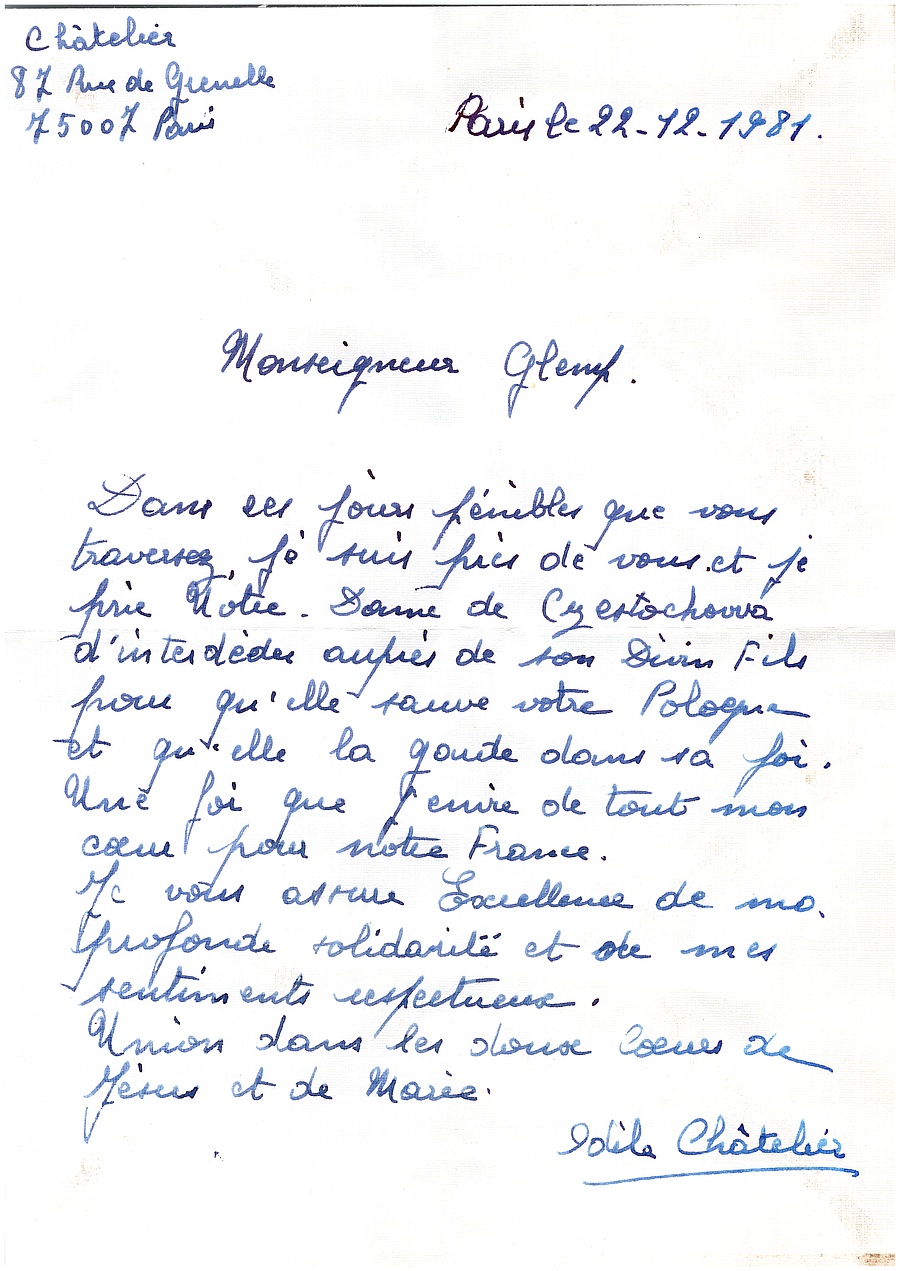 Châtelier
87 Rue de Grenelle
75007 Paris
Paris le 22-12-1981.
Monseigneur Glemp.
Dans ces jours pénibles que vous
traversez je suis près de vous et je
prie Notre-Dame de Czestochowa
d'intercèder auprès de son Divin Fils
pour qu'elle sauve votre Pologne
et qu'elle la garde dans sa foi.
Une foi que j'envie de tout mon
cœur pour notre France.
Je vous assure Excellence de ma
profonde solidarité et de mes
sentiments respectueux.
Union dans les doux Cœurs de
Jésus et de Marie.
Odile Châtelier